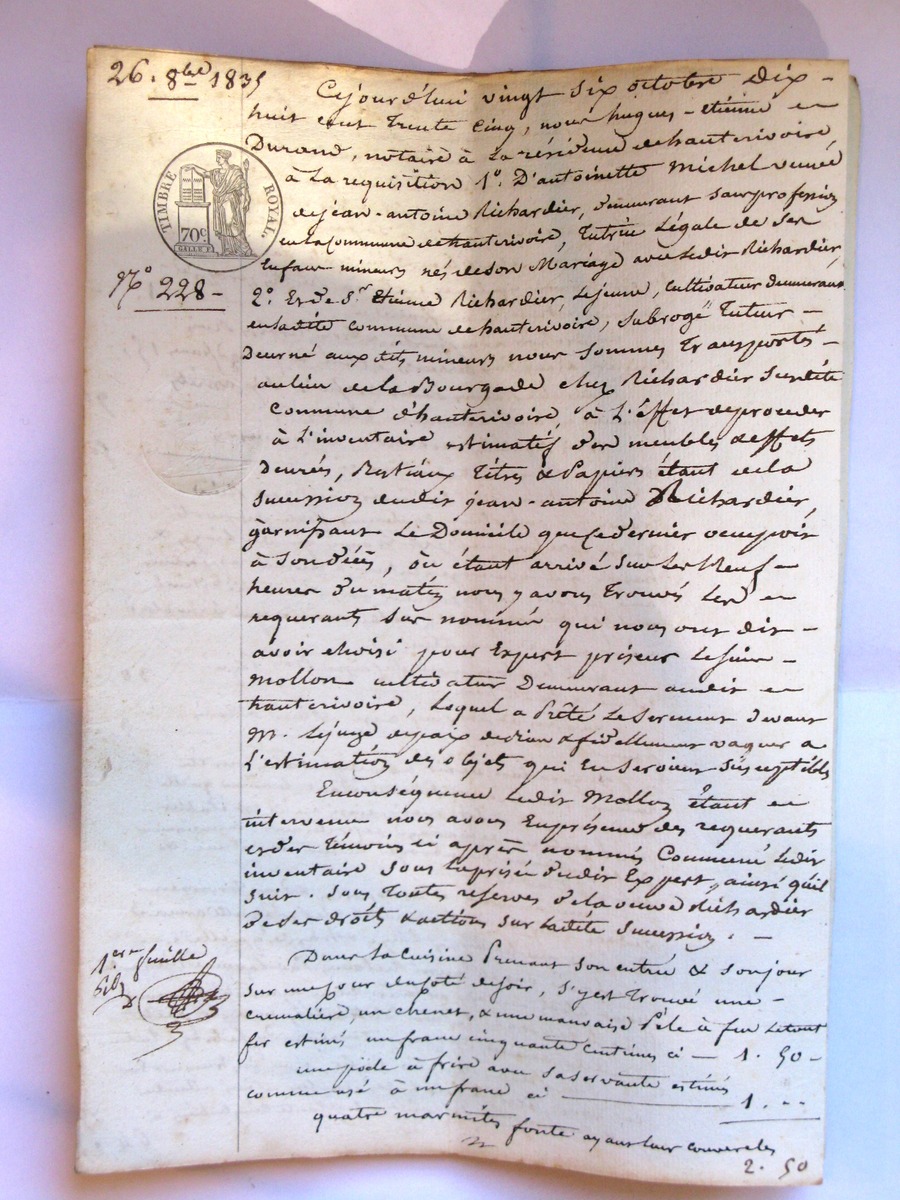 26. 8bre 1835
Cejourd'hui vingt six octobre dix-
huit cent trente cinq, nous hugues-étienne
Durand, notaire à la résidence de hauterivoire
à la requisition 1º. D'antoinette Michel veuve
de jean-antoine Richardier, demeurant sans profession
en la commune de hauterivoire, tutrice légale de ses
Enfans mineurs nés de son Mariage avec ledit Richardier,
2º. Et de Sr. Etienne Richardier, Lejeune, cultivateur demeurant
en ladite commune de hauterivoire, subrogé tuteur -
Decerné aux dits mineurs nous sommes transportés -
au lieu de la Bourgade chez Richardier susdite
commune d'hauterivoire à l'effet de proceder
à l'inventaire estimatif des meubles & effets
Denrées, Bestiaux titres & Papiers étant de la
succession dudit jean-antoine Richardier,
garnissant le Domicile que ce dernier occupoit
à son décès, où étant arrivé sur les Neuf -
heures du matin nous y avons trouvés les
requerants sus nommés qui nous ont dit -
avoir choisi pour Expert priseur le sieur -
Mollon cultivateur Demeurant audit
hauterivoire, lequel a Prêté le serment devant
M. le juge de paix de bien & fidellement vaquer a
l'estimation des objets qui en seroient susceptibles
En conséquence ledit Mollon étant
intervenu nous avons en présence des requerants
et des témoins ci après nommés Commencé ledit
inventaire sous la prisée dudit Expert, ainsi qu'il
suit. sous toutes reserves de la veuve Richardier
de ses droits & actions sur ladite succession. -
Dans la cuisine Prenant son entrée & son jour
sur une cour du coté de soir, s'y est trouvé une -
cremalière, un chenet, & une mauvaise Pêle à feu le tout
fer estimés un franc cinquante centimes ci - 1. 50 -
une poële à frire avec sa servante estimés
à un franc ci 1. --
quatre marmites fonte ayant leur couvercles
2. 50
TIMBRE ROYAL.
70c
Nº 228 -
1ere feuille